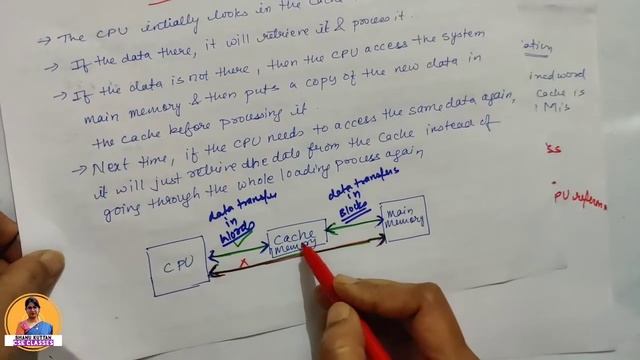 → The CPU initially looks in the Cache
→ If the data there, it will retrieve it & process it.
→ If the data is not there, then the CPU access the system
main memory & then puts a copy of the new data in
the cache before processing it.
→ Next time, if the CPU needs to access the same data again,
it will just retrieve the data from the Cache instead of
going through the whole loading process again
data transfer
in
Word
data transfers
in
Blocks
CPU
Cache
memory
main
memory
X
ation
ined word
Cache is
Mis
ss
PU referen
BHANU KUTTAN
CSE CLASSES